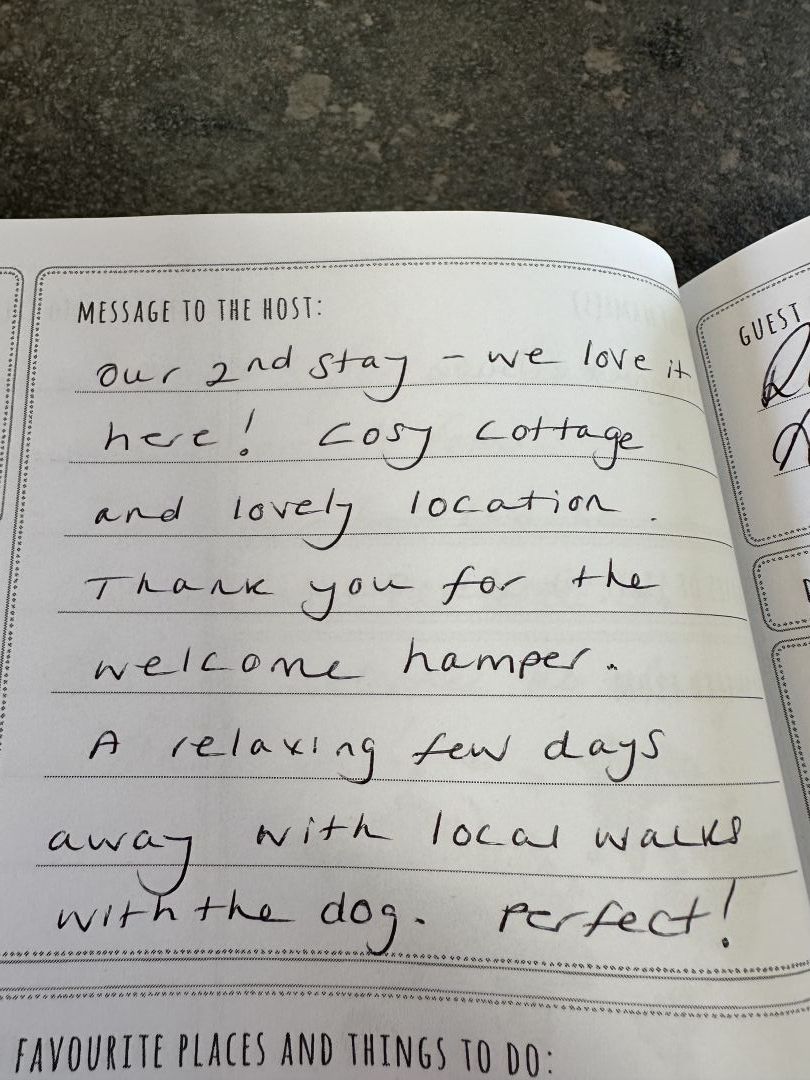 MESSAGE TO THE HOST:
our 2nd stay - we love it
here! Cosy cottage
and lovely location.
Thank you for the
welcome hamper.
A relaxing few days
away with local walks
with the dog. Perfect!
FAVOURITE PLACES AND THINGS TO DO:
GUEST